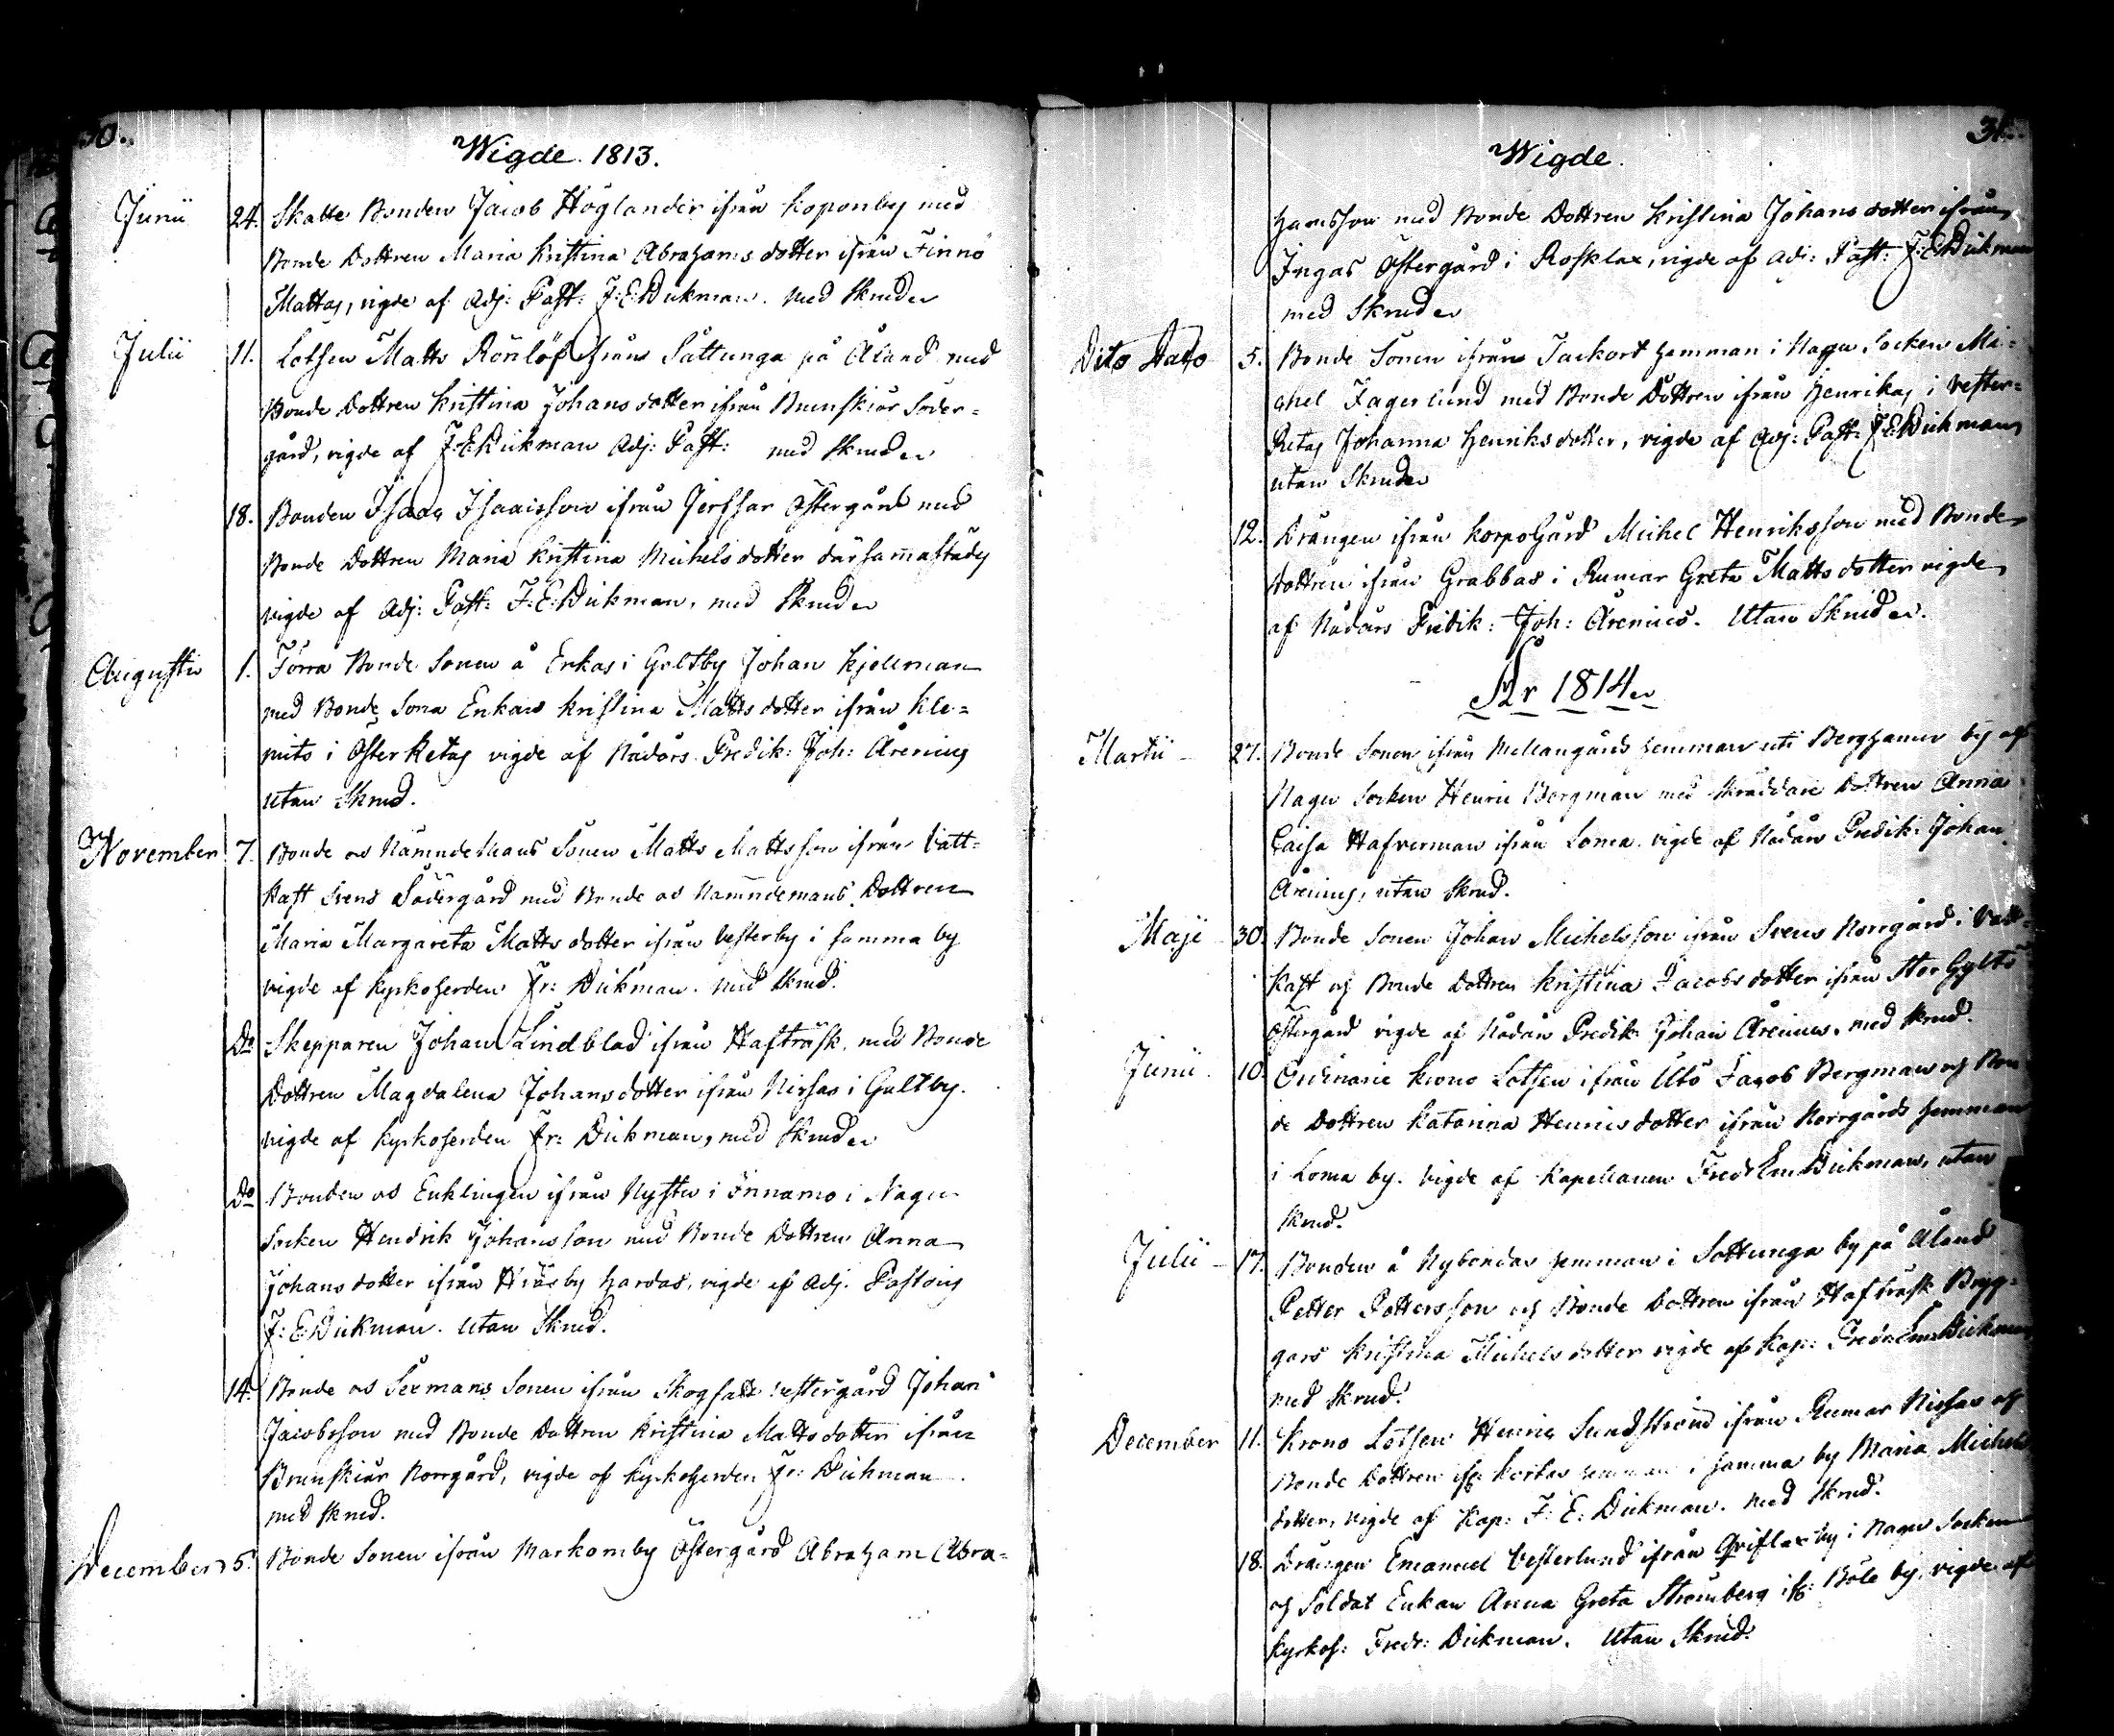 30.
Wigde. 1813.
Junii 24. Skatte Bonden Jacob Höglander ifrån Koponby med
Bonde Dottren Maria Kristina Abrahams dotter ifrån Finnö
Mattas, vigde af Adj: Past: F: E: Dickman. med Skrud
Julii 11. Lotsen Matts Rönlöf ifrån Såttunga på Åland med
Bonde Dottren Kristina Johans dotter ifrån Brunskiär Söder=
gård, vigde af F: E: Dickman Adj: Past: med Skrud
18. Bonden Isaac Isaacsson ifrån Jerssar Östergård med
Bonde Dottren Maria Kristina Michels dotter därsammastädes
vigde af Adj: Past: F: E: Dickman, med Skrud
Augusti 1. Förra Bonde Sonen å Erkas i Galtby Johan Kjellman
med Bonde Sona Enkan Kristina Matts dotter ifrån Kle=
mits i Öster Retas vigde af Nådårs Predik: Joh: Arenius
utan Skrud.
November 7. Bonde os Nämndemans Sonen Matts Mattsson ifrån Vatt=
kast Svens Södergård med Bonde os Namndemans Dottren
Maria Margareta Matts dotter ifrån Vesterby i samma by
vigde af Kyrkoherden Fr: Dickman. med Skrud.
Do Skepparen Johan Lindblad ifrån Hafträsk, med Bonde
Dottren Magdalena Johansdotter ifrån Nissas i Galtby.
vigde af Kyrkoherden Fr: Dickman, med Skrud
Do Bonden os Enklingen ifrån Nystu i Innamo i Nagu
Socken Hendrik Johansson med Bonde Dottren Anna
Johans dotter ifrån Hiäsby Hardas, vigde af Adj. Pastoris
F: E: Dickman. utan Skrud.
14. Bonde os Sexmans Sonen ifrån Skogsatt Vestergård Johan
Jacobsson med Bonde Dottren Kristina Mattsdotter ifrån
Brunskiär Norrgård, vigde af Kyrkoherden Fr: Dickman
med skrud.
December 5. Bonde Sonen ifrån Markomby Östergård Abraham Abra=
31.
Wigde.
hamsson med Bonde Dottren Kristina Johans dotter ifrån
Ingas Östergård i Rosklax, vigde af Adj: Past: F: E: Dickman
med Skrud
Dito Dato 5. Bonde Sonen ifrån Jackort hemman i Nagu Socken Mi=
chel Fagerlund med Bonde Dottren ifrån Henrikas i Vester=
Retas Johanna Henriks dotter, vigde af Adj: Past: F: E: Dickman
utan Skrud
12. Drängen ifrån KorpoGård Michel Henriksson med Bonde
dottren ifrån Grabbas i Rumar Greta Matts dotter vigde
af Nådårs Predik: Joh: Arenius. Utan Skrud.
År 1814
Martii 27. Bonde Sonen ifrån Mellangårds hemman uti Berghamn by af
Nagu Socken Henric Bergman med Skräddare Dottren Anna
Caisa Hafverman ifrån Loma. vigde af Nådårs Predik: Johan
Arenius, utan Skrud.
Maji 30. Bonde Sonen Johan Michelsson ifrån Svens Norrgård i Vatt=
kast og Bonde Dottren Kristina Jacobs dotter ifrån Stor Gyltö
Östergård vigde af Nådårs Predik: Johan Arenius. med skrud.
Junii 10. Ordinarie Krono Lotsen ifrån Utö Jacob Bergman og Bon
de Dottren Katarina Henrics dotter ifrån Norrgårds hemman
i Loma by. vigde af Kapellanen Fred: Em Dickman, utan
Skrud.
Julii 17. Bonden å Nybondas hemman i Sottunga by på Åland
Petter Pettersson og Bonde Dottren ifrån Hafträsk Brygg=
gars Kristina Michels dotter vigde af Kap: Fredr: Em: Dickman
med Skrud.
December 11. Krono Lotsen Henric Sundström ifrån Rumar Nissas og
Bonde Dottren ifr: Kortas hemman i samma by Maria Michels
dotter, vigde af Kap: F: E: Dickman. med Skrud.
18. Drängen Emanuel Vesterlund ifrån Qviflax by i Nagu Socken
og Soldat Enkan Anna Greta Stromberg ifr: Böle by. vigde af
Kyrkoh: Fredr: Dickman. Utan Skrud.